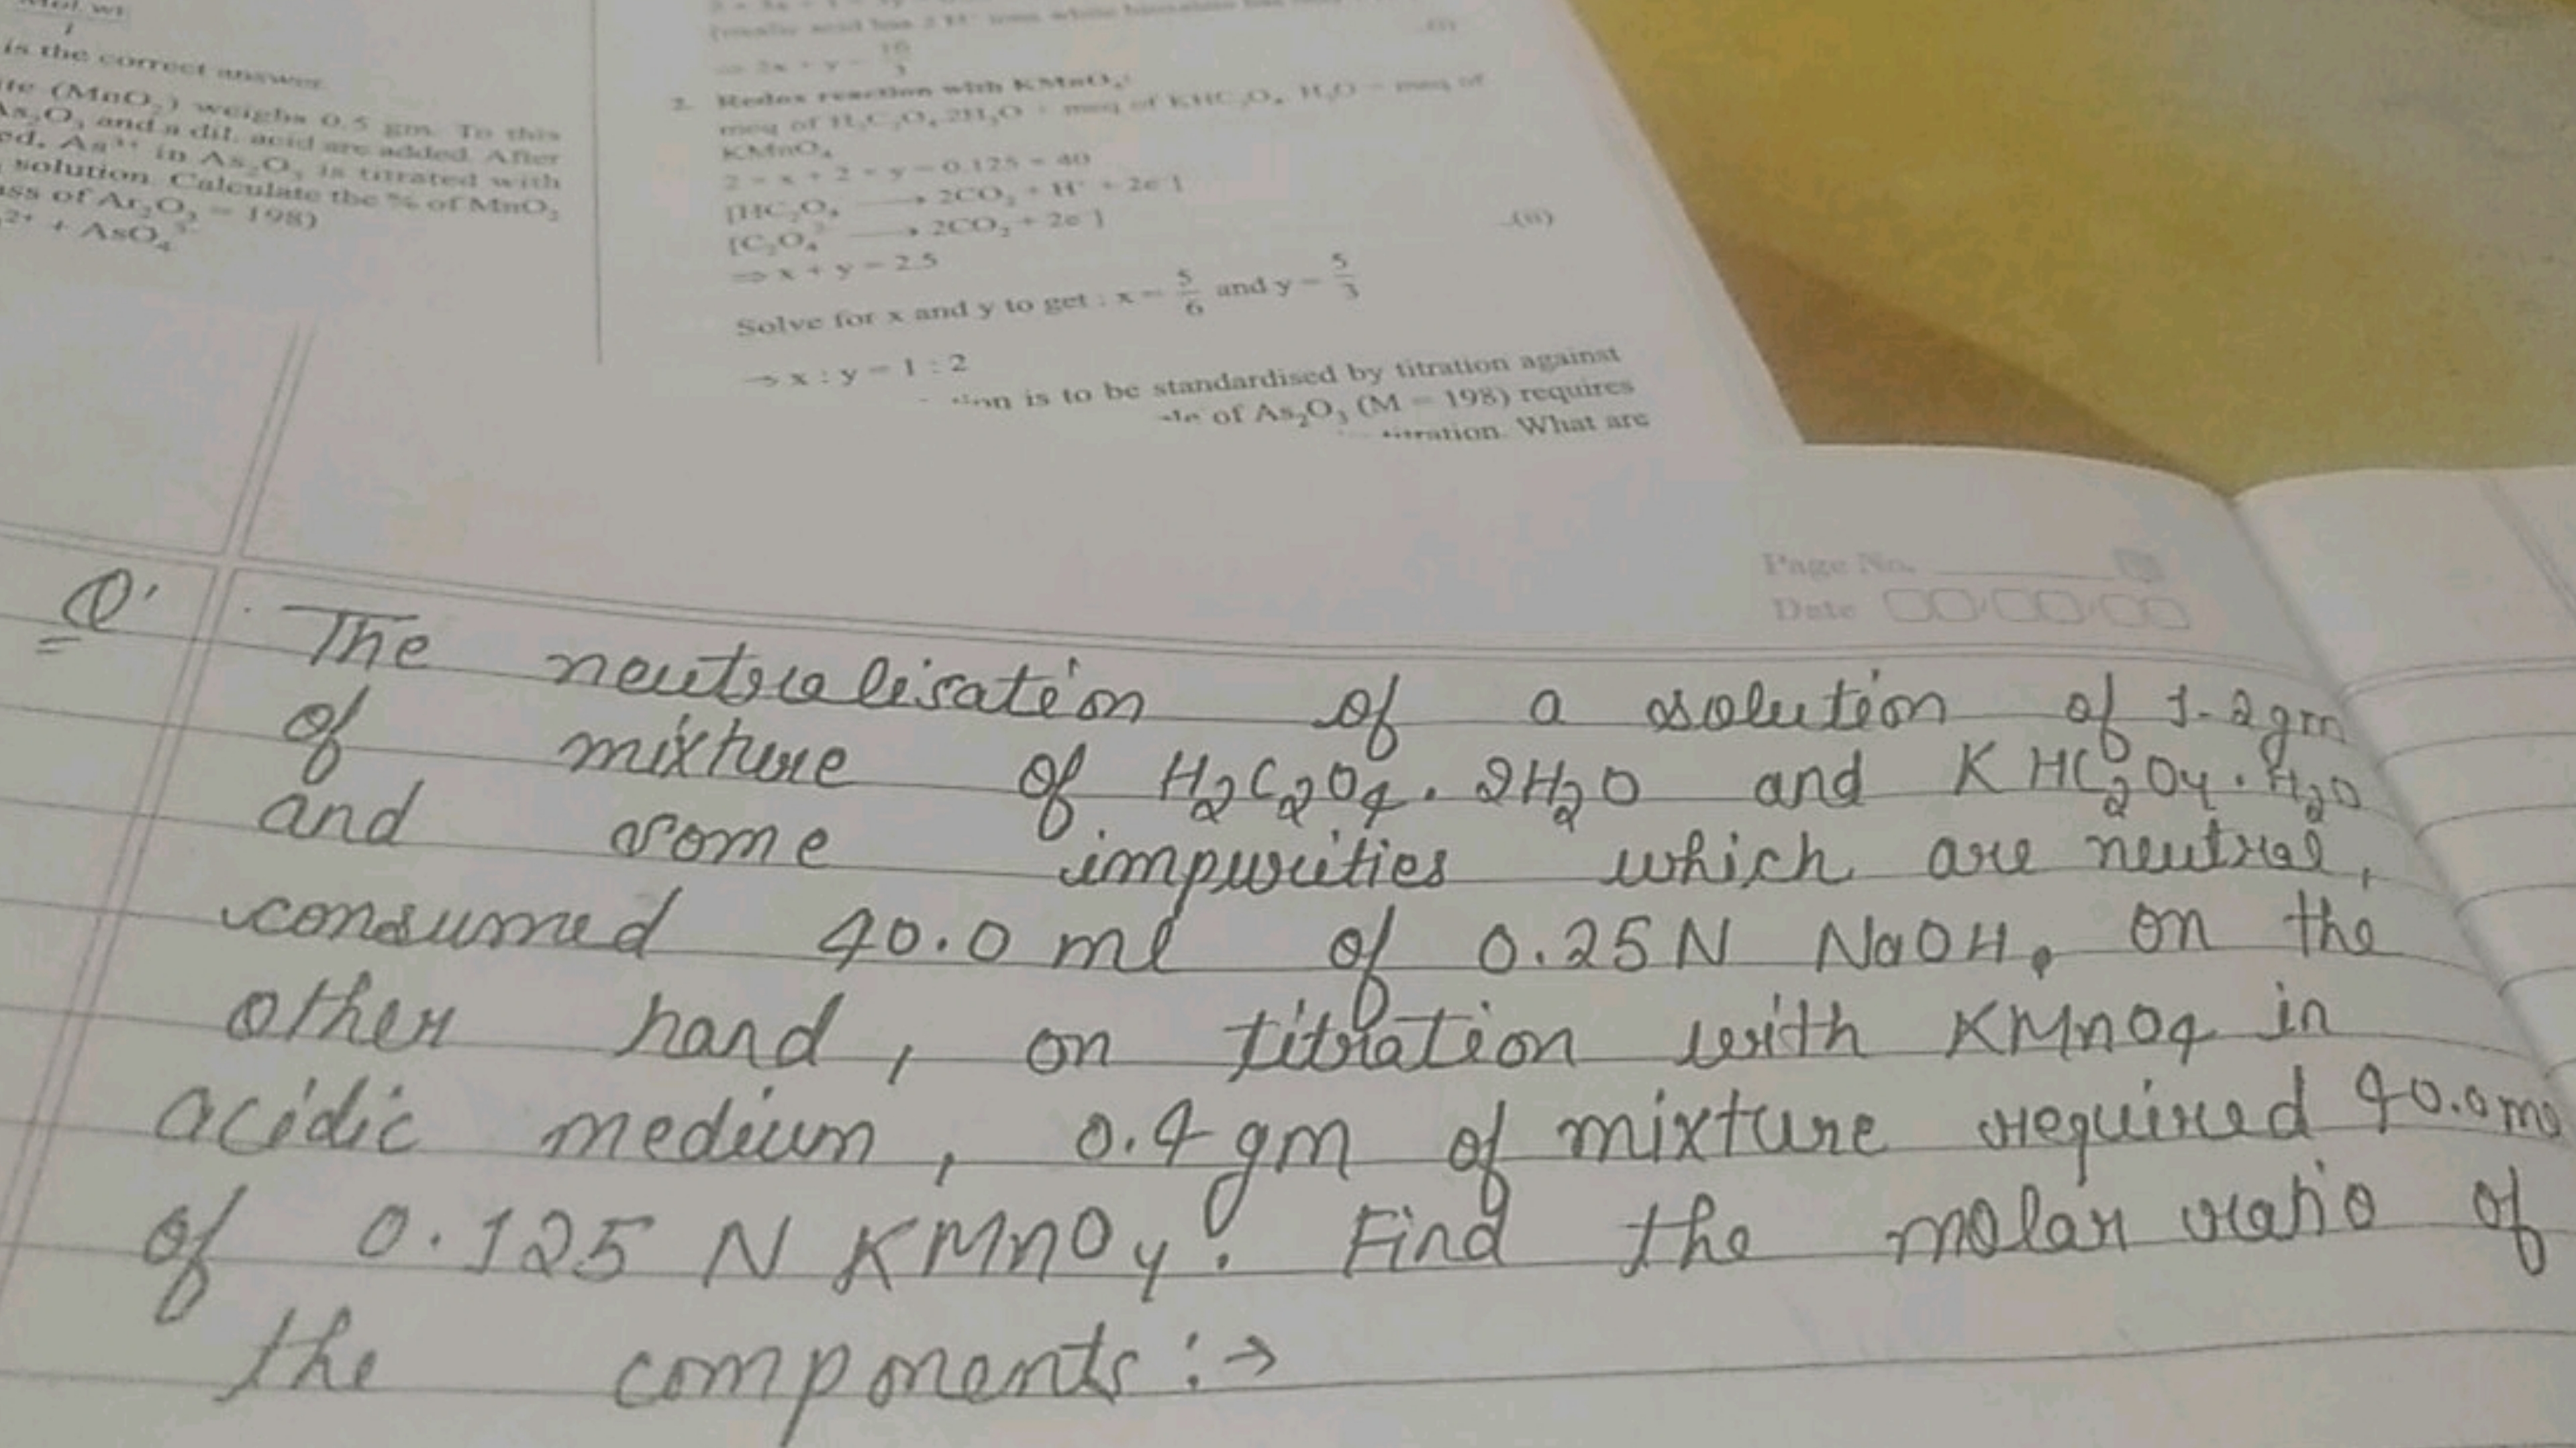 Mol. wt
is the correct answer.
te (MnO₂) weighs 0.5 gm. To this
As₂O₃ and a dil. acid are added. After
ed, As³⁺ in As₂O₃ is titrated with
solution. Calculate the % of MnO₂
ass of Ar₂O₃ = 198)
²⁺ + AsO₄³⁻
2. Redox reaction with KMnO₄:
meq of H₂C₂O₄.2H₂O + meq of KHC₂O₄. H₂O = meq of
KMnO₄
2 × x + 2 × y = 0.125 × 40
[HC₂O₄⁻ ⟶ 2CO₂ + H⁺ + 2e⁻]
[C₂O₄²⁻ ⟶ 2CO₂ + 2e⁻]
⇒ x + y = 2.5 ...(ii)
Solve for x and y to get : x = 5/6 and y = 5/3
⇒ x : y = 1 : 2
is to be standardised by titration against
of As₂O₃ (M = 198) requires
titration. What are
Page No.
Date
Q. The neutralisation of a solution of 1.2gm
of mixture of H₂C₂O₄. 2H₂O and KHC₂O₄. H₂O
and some impurities which are neutral,
consumed 40.0 ml of 0.25N NaOH. on the
other hand, on titration with KMnO₄ in
acidic medium, 0.4 gm of mixture required 40.0 ml
of 0.125 N KMnO₄. Find the molar ratio of
the components :→